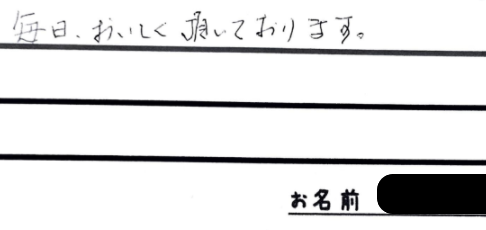 毎日、おいしく頂いております。
お名前